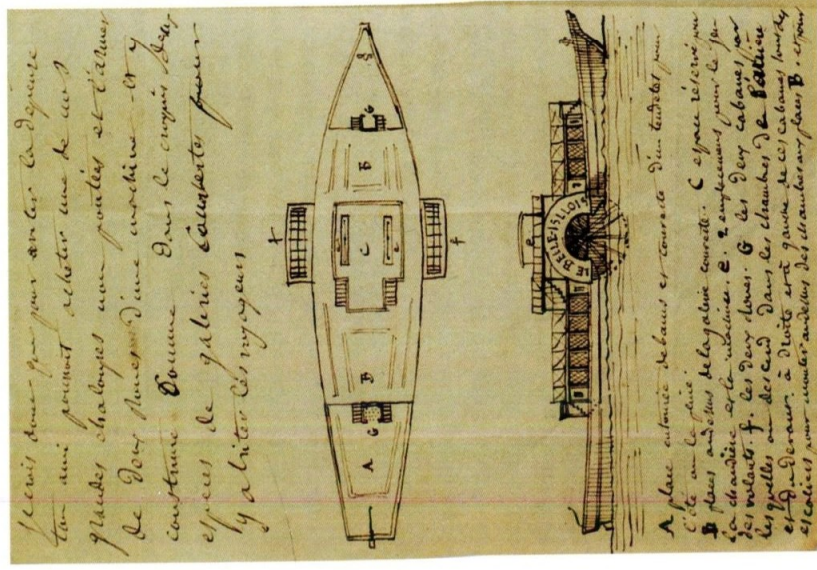 je crois donc que pour éviter la dépense
ton ami pourrait acheter une de nos
grandes chaloupes non pontées et l'armer
de deux roues d'une machine et y
construire comme dans le croquis deux
espèces de galeries couvertes pour
y abriter les voyageurs
f
G
B
C
e
e
B
G
A
f
LE BELLE-ISLLOIS
A place entourée de bancs et couverte d'un tendelet pour
l'été ou la pluie.
B places au dessus de la galerie couverte. C espace réservé pour
la chaudière et la machine. e. e emplacement pour le jeu
des volants. f. les deux roues. G les deux cabanes par
lesquelles on descend dans les chambres de l'arrière
et du devant à droite et à gauche de ces cabanes sont des
escaliers pour monter au dessus des chambres aux places B.